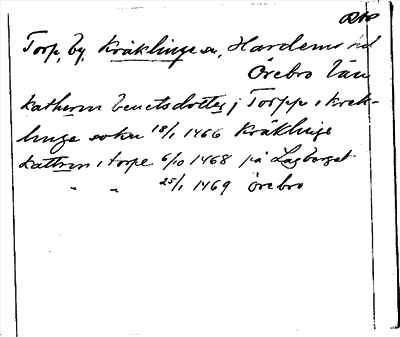 Torp, by, Kräklinge sn, Hardemo hd
Örebro län
katherin bencts dotter j Torpp i krek-
linge sokn 18/1 1466 Kräklinge
katrin i torpe 6/10 1468 på Lagberget
" " 25/1 1469 Örebro